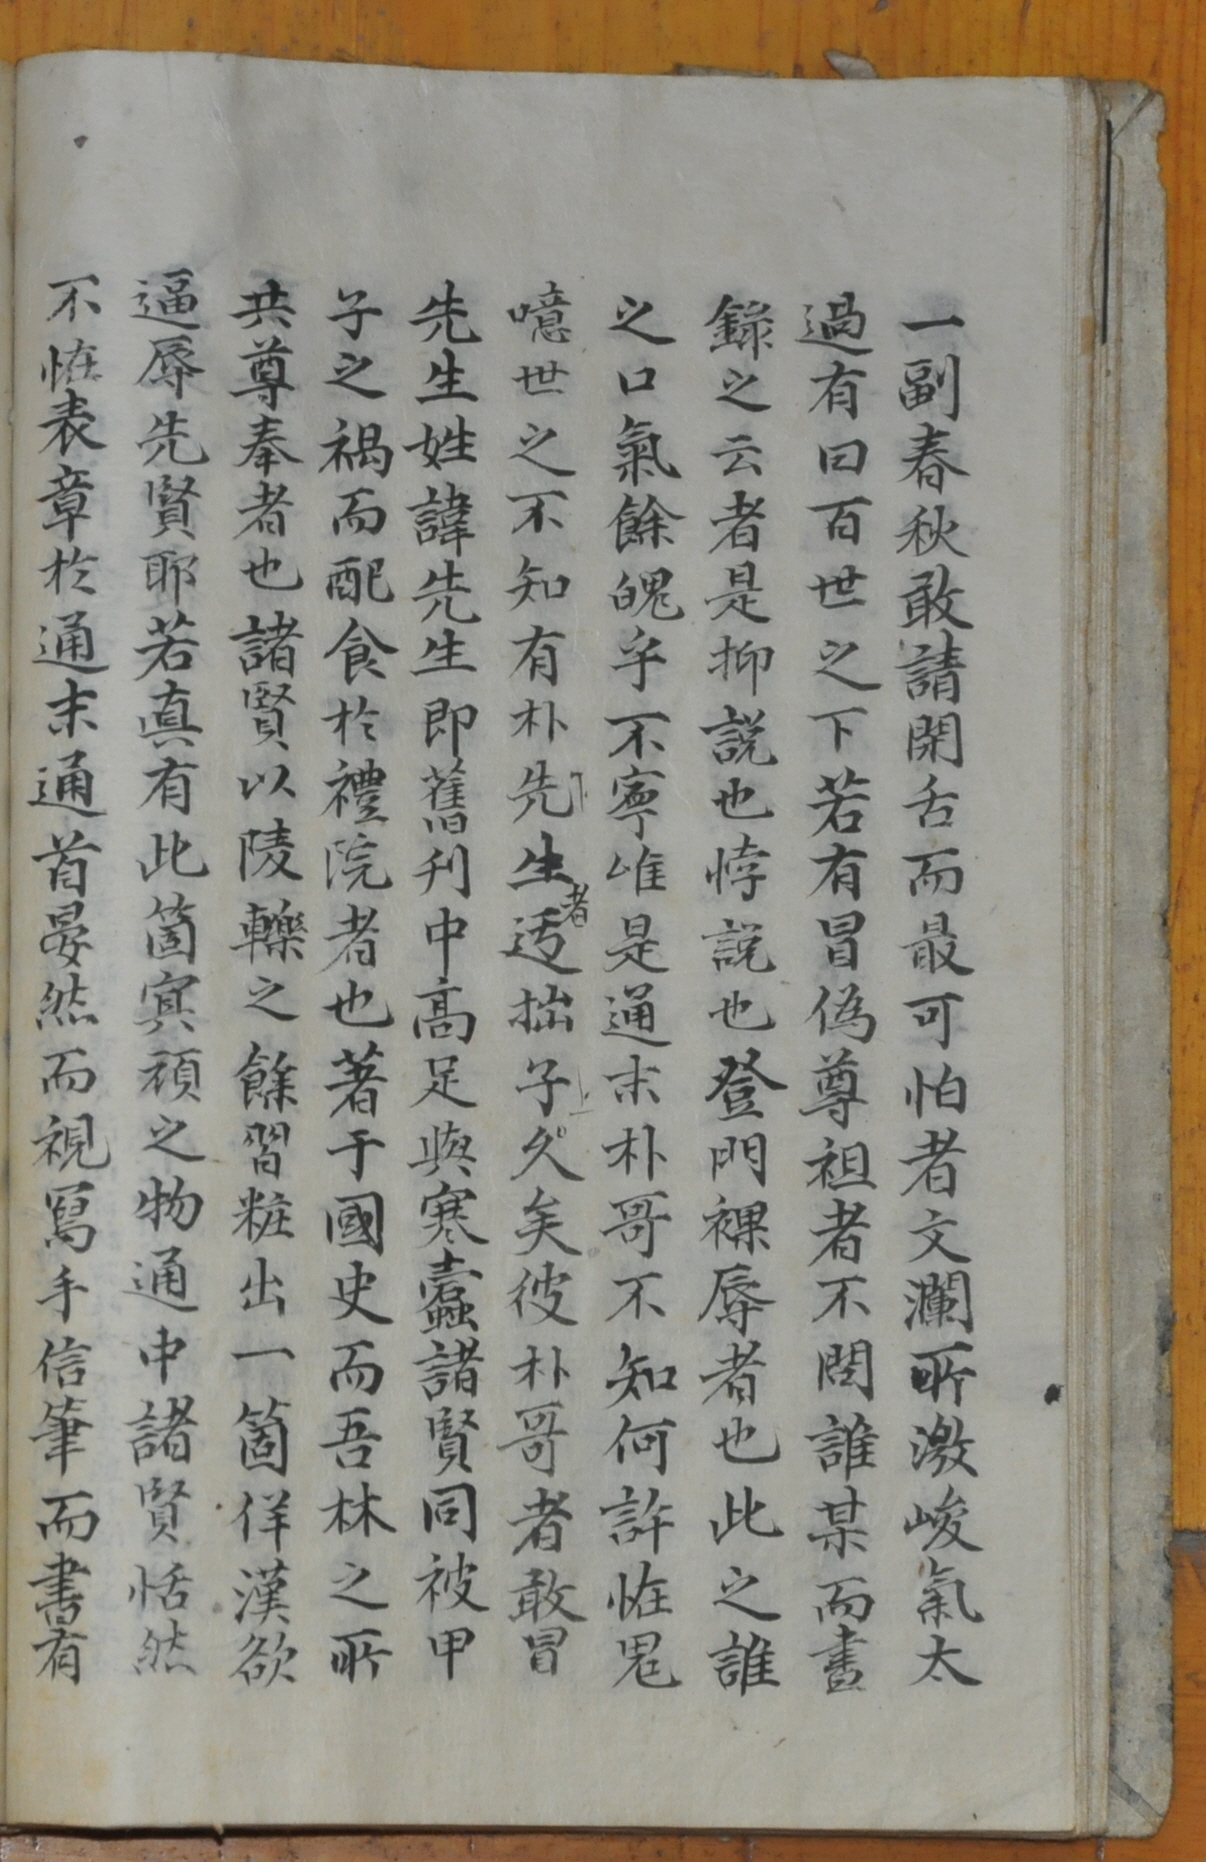 一副春秋敢請開舌而最可怕者文瀾所激峻氣太
過有曰百世之下若有冒偽尊祖者不問誰某而書
錄之云者是抑說也悖說也登門裸辱者也此之誰
之口氣餘魄乎不寧唯是通末朴哥不知何許恠鬼
噫世之不知有朴先生者迃拙子久矣彼朴哥者敢冒
先生姓諱先生即舊刋中高足與寒蠹諸賢同被甲
子之禍而配食於禮院者也著于國史而吾林之所
共尊奉者也諸賢以陵轢之餘習粧出一箇佯漢欲
逼辱先賢耶若真有此箇冥頑之物通中諸賢恬然
不恠表章於通末通首晏然而視寫手信筆而書有